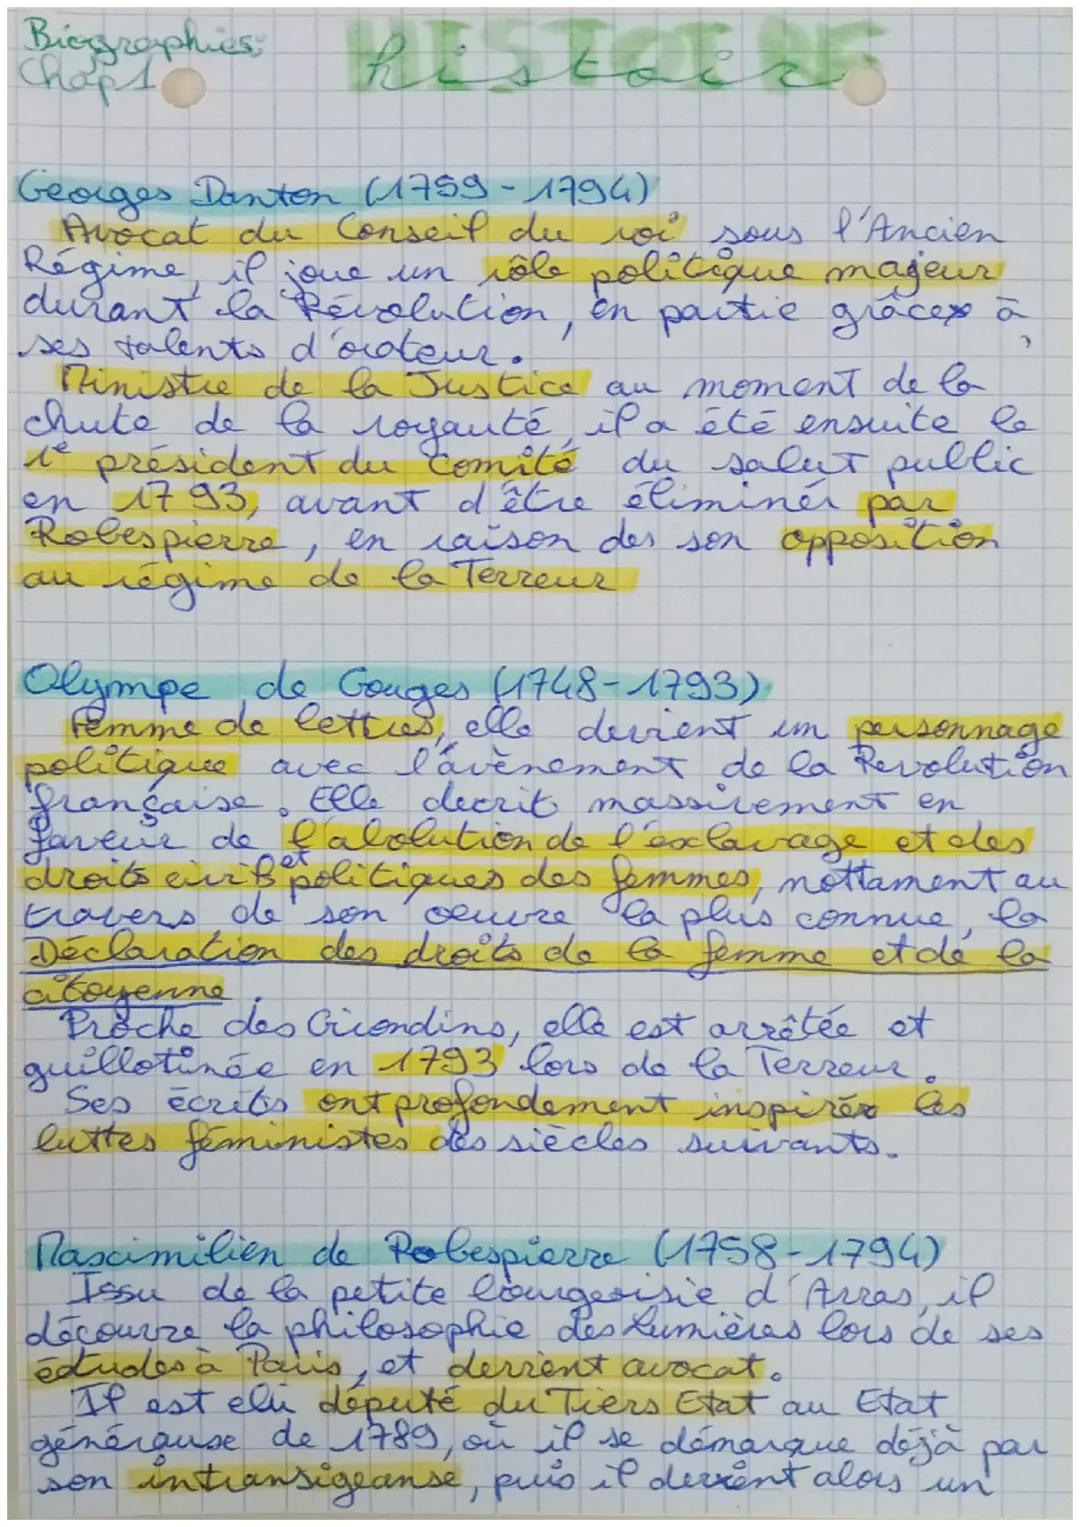 Biographies:
Chap 1
HISTOIRE
histoire
Georges Danton (1759-1794)
Avocat du Conseil du roi sous l'Ancien
Régime, il joue un rôle politique majeur
durant la Révolution, en partie grâce à
ses talents d'orateur.
Ministre de la Justice au moment de la
chute de la royauté, il a été ensuite le
1e président du comité du salut public
en 1793, avant d'être éliminér par
Robespierre, en raison des son opposition
au régime de la Terreur
Olympe de Gouges (1748-1793)
Femme de lettres, elle devient un personnage
politique avec l'avènement de la Revolution
française. Elle decrit massivement en
faveur de l'abolution de l'exclavage et des
droits civils et politiques des femmes, nottament au
travers de son oeuvre la plus connue, la
Déclaration des droits de la femme et de la
citoyenne.
Proche des Girondins, elle est arrêtée et
guillotinée en 1793 lors de la Terreur.
Ses écrits ont profondement inspirér les
luttes féministes des siècles suivants.
Maximilien de Robespierre (1758-1794)
Issu de la petite bourgeoisie d'Arras, il
découvre la philosophie des Lumières lors de ses
études à Paris, et devient avocat.
Il est élu député du Tiers Etat au Etat
générause de 1789, où il se démarque déjà par
son intransigeanse, puis il devient alors un